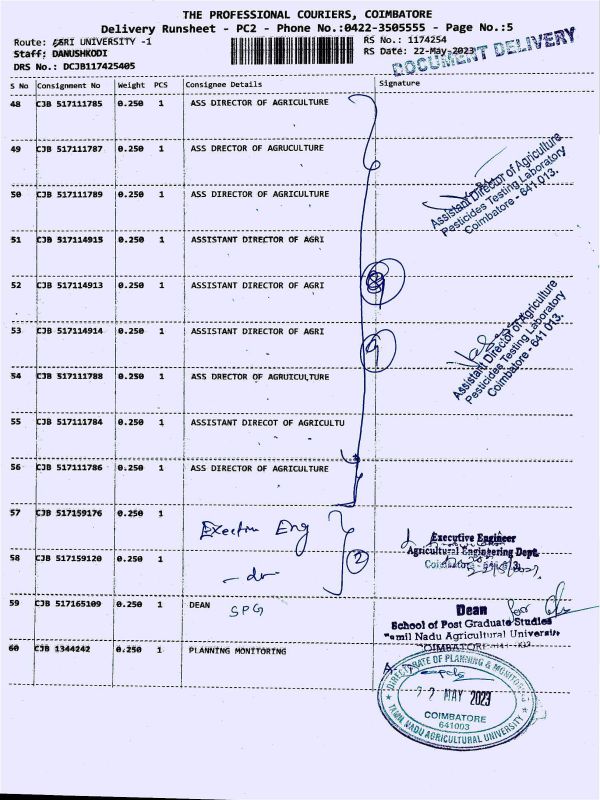 THE PROFESSIONAL COURIERS, COIMBATORE
Delivery Runsheet - PC2 - Phone No.:0422-3505555 - Page No.:5
Route: AGRI UNIVERSITY -1
RS No.: 1174254
Staff: DANUSHKODI
RS Date: 22-May-2023
DRS No.: DCJB117425405
DOCUMENT DELIVERY
S No Consignment No Weight PCS Consignee Details Signature
48 CJB 517111785 0.250 1 ASS DIRECTOR OF AGRICULTURE
49 CJB 517111787 0.250 1 ASS DRECTOR OF AGRUCULTURE
50 CJB 517111789 0.250 1 ASS DIRECTOR OF AGRICULTURE
Assistant Director of Agriculture
Pesticides Testing Laboratory
Coimbatore - 641 013.
51 CJB 517114915 0.250 1 ASSISTANT DIRECTOR OF AGRI
52 CJB 517114913 0.250 1 ASSISTANT DIRECTOR OF AGRI
9
53 CJB 517114914 0.250 1 ASSISTANT DIRECTOR OF AGRI
9
Assistant Director of Agriculture
Pesticides Testing Laboratory
Coimbatore - 641 013.
54 CJB 517111788 0.250 1 ASS DRECTOR OF AGRUICULTURE
55 CJB 517111784 0.250 1 ASSISTANT DIRECOT OF AGRICULTU
56 CJB 517111786 0.250 1 ASS DIRECTOR OF AGRICULTURE
57 CJB 517159176 0.250 1
Eng
Executive Engineer
Agricultural Engineering Dept.
58 CJB 517159120 0.250 1
2
Coimbatore
59 CJB 517165109 0.250 1 DEAN
SPG
Dean
School of Post Graduate Studies
Tamil Nadu Agricultural University
COIMBATORE
60 CJB 1344242 0.250 1 PLANNING MONITORING
DIRECTORATE OF PLANNING & MONITORING
22 MAY 2023
COIMBATORE
641003
TAMIL NADU AGRICULTURAL UNIVERSITY